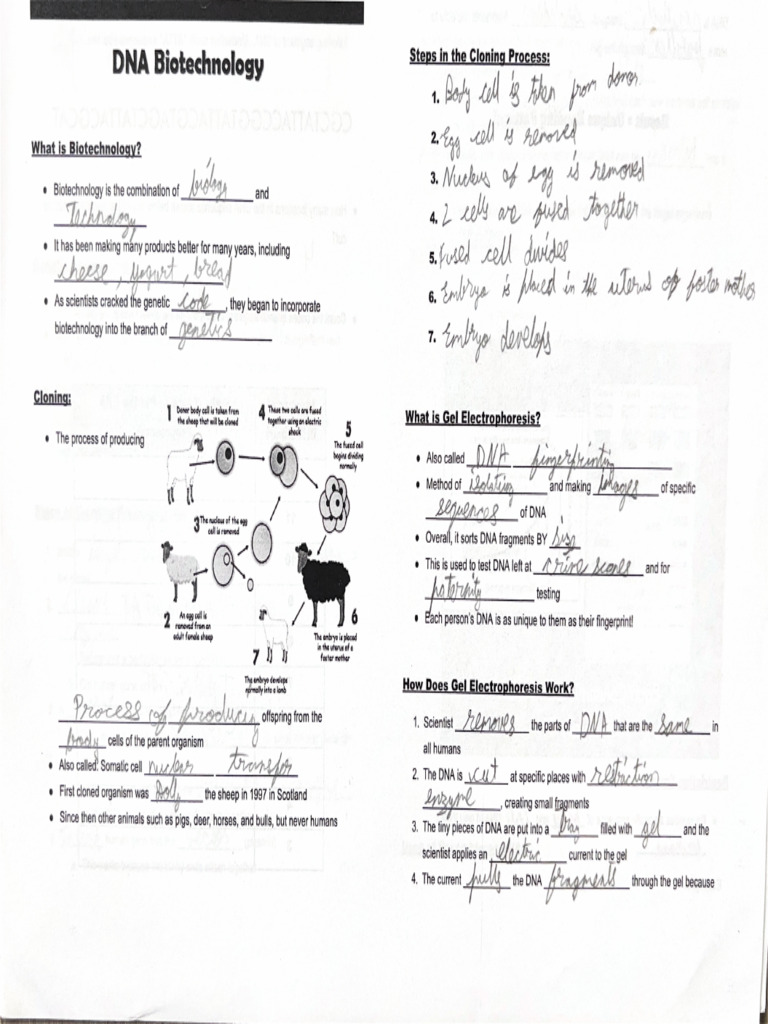 DNA Biotechnology
What is Biotechnology?
• Biotechnology is the combination of biology and
Technology
• It has been making many products better for many years, including
cheese, yogurt, bread
• As scientists cracked the genetic code, they began to incorporate
biotechnology into the branch of genetics
Cloning:
• The process of producing
1 Donor body cell is taken from
the sheep that will be cloned
4 These two cells are fused
together using an electric
shock
5
The fused cell
begins dividing
normally
3 The nucleus of the egg
cell is removed
2 An egg cell is
removed from an
adult female sheep
6
The embryo is placed
in the uterus of a
foster mother
7
The embryo develops
normally into a lamb
Process of producing offspring from the
body cells of the parent organism
• Also called: Somatic cell nuclear transfer
• First cloned organism was Dolly the sheep in 1997 in Scotland
• Since then other animals such as pigs, deer, horses, and bulls, but never humans
Steps in the Cloning Process:
1. Body cell is taken from donor
2. Egg cell is removed
3. Nucleus of egg is removed
4. 2 cells are fused together
5. Fused cell divides
6. Embryo is placed in the uterus of foster mother
7. Embryo develops
What is Gel Electrophoresis?
• Also called DNA fingerprinting
• Method of isolating and making images of specific
sequences of DNA
• Overall, it sorts DNA fragments BY size
• This is used to test DNA left at crime scenes and for
paternity testing
• Each person's DNA is as unique to them as their fingerprint!
How Does Gel Electrophoresis Work?
1. Scientist removes the parts of DNA that are the same in
all humans
2. The DNA is cut at specific places with restriction
enzyme, creating small fragments
3. The tiny pieces of DNA are put into a tray filled with gel and the
scientist applies an electric current to the gel
4. The current pulls the DNA fragments through the gel because